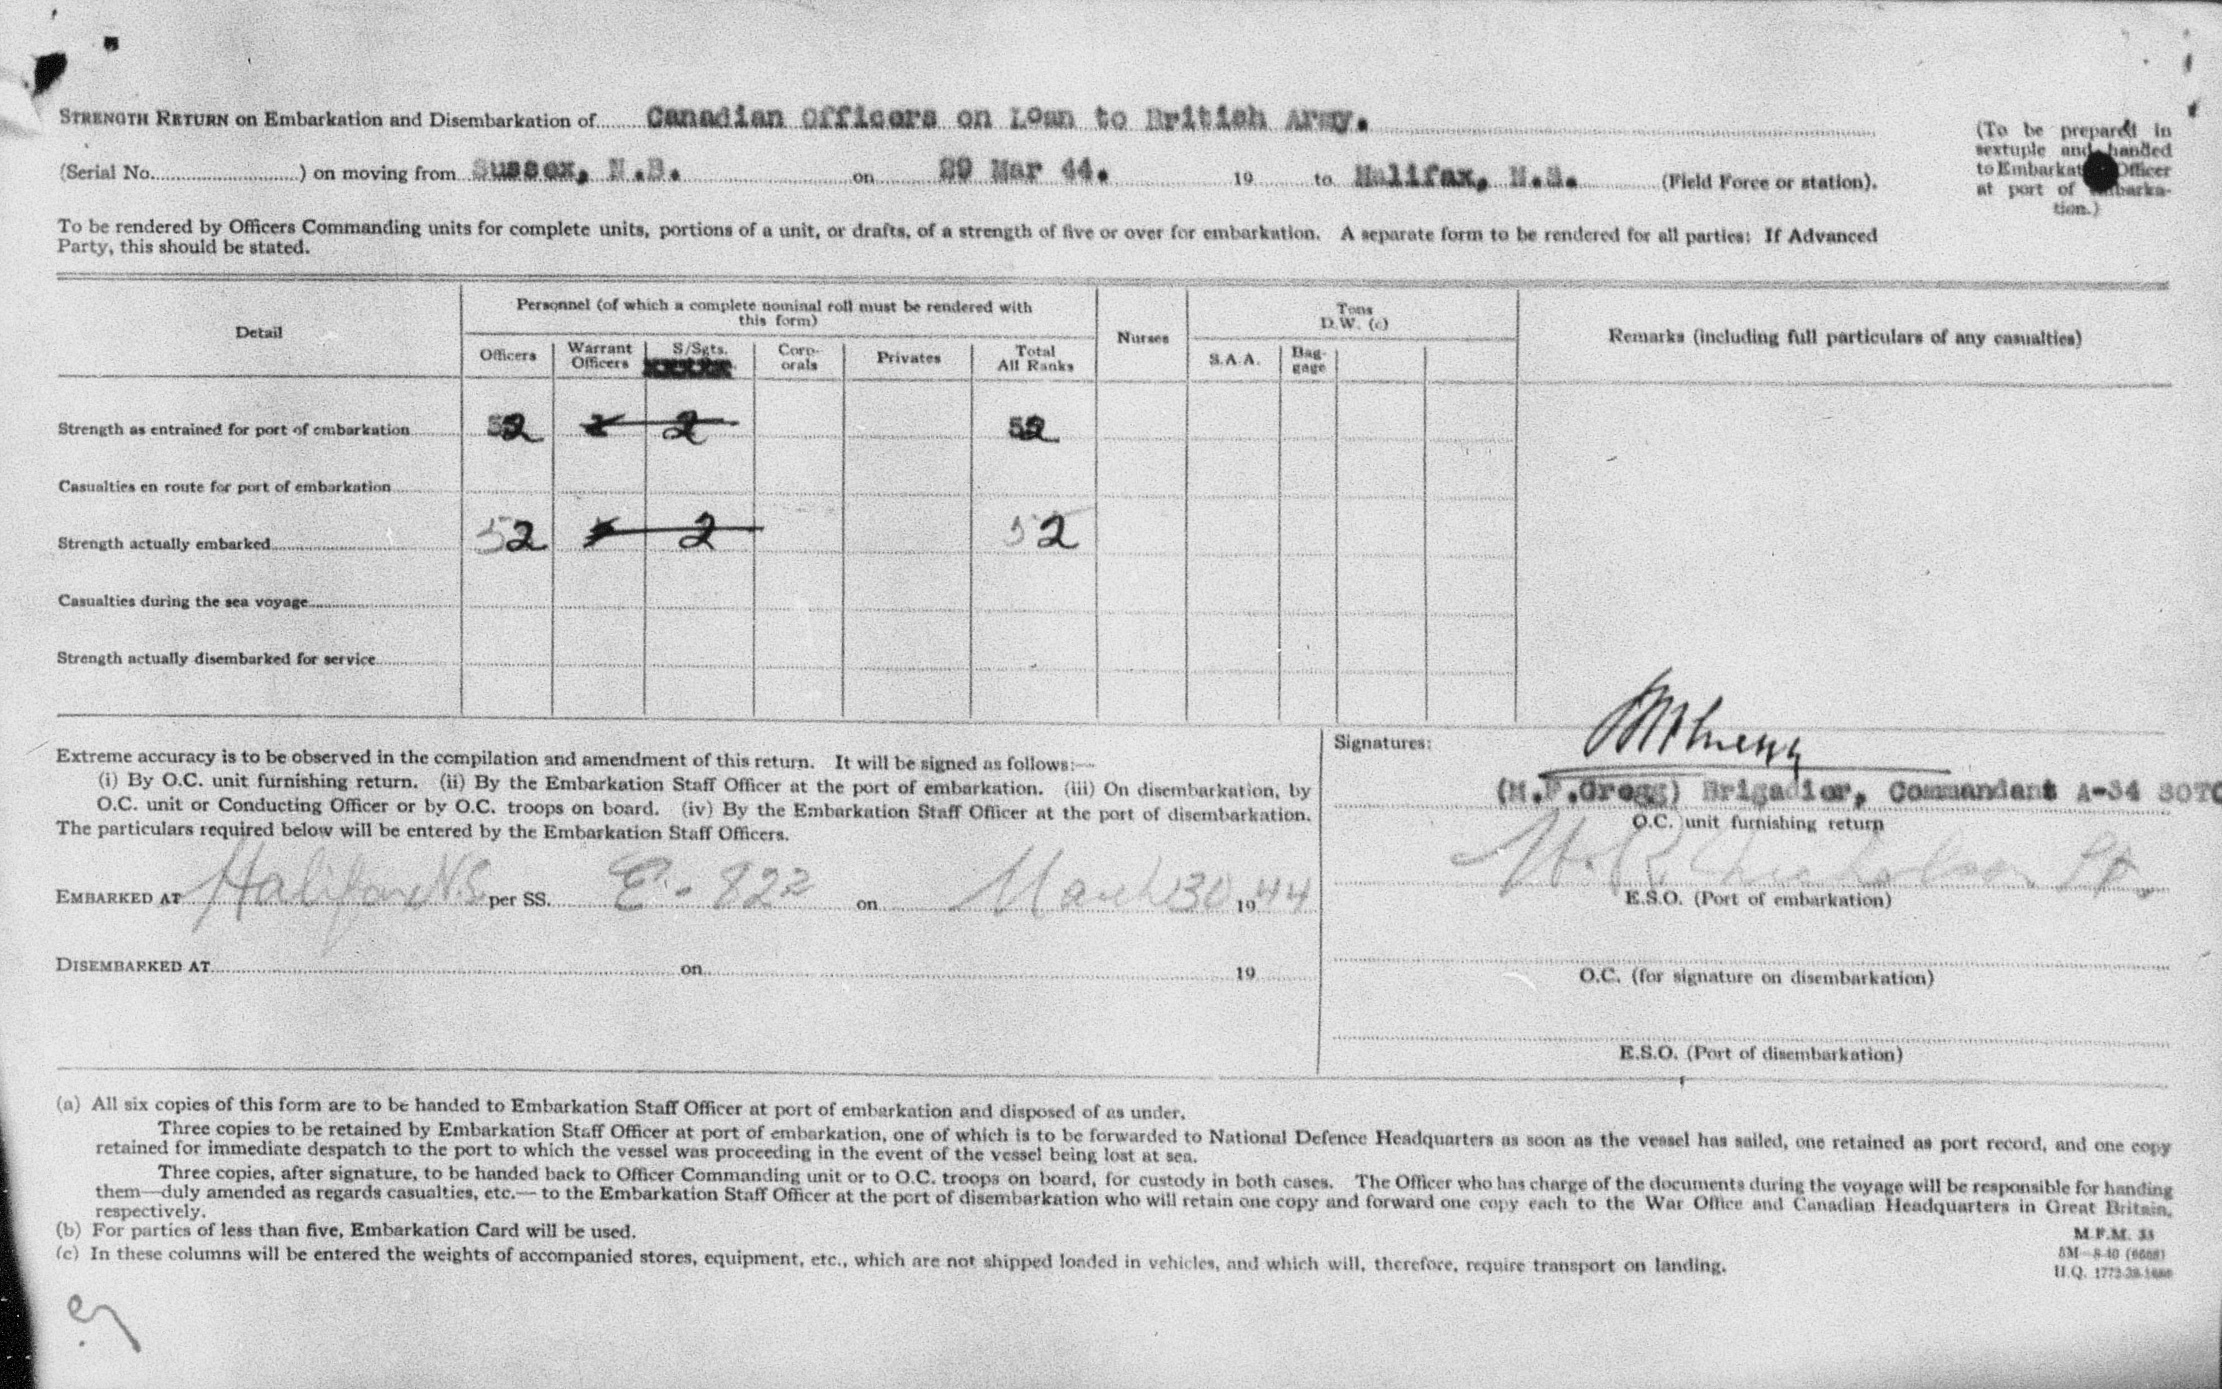 STRENGTH RETURN on Embarkation and Disembarkation of Canadian Officers on Loan to British Army.
(To be prepared in sextuple and handed to Embarkation Officer at port of embarkation.)
(Serial No. ) on moving from Sussex, N.B. on 29 Mar 44. 19 to Halifax, N.S. (Field Force or station).
To be rendered by Officers Commanding units for complete units, portions of a unit, or drafts, of a strength of five or over for embarkation. A separate form to be rendered for all parties: If Advanced
Party, this should be stated.
Detail
Personnel (of which a complete nominal roll must be rendered with
this form)
Officers
Warrant
Officers
S/Sgts.
Corp-
orals
Privates
Total
All Ranks
Nurses
Tons
D.W. (c)
S.A.A.
Bag-
gage
Remarks (including full particulars of any casualties)
Strength as entrained for port of embarkation 52 2 52
Casualties en route for port of embarkation
Strength actually embarked 52 2 52
Casualties during the sea voyage
Strength actually disembarked for service
Extreme accuracy is to be observed in the compilation and amendment of this return. It will be signed as follows:—
(i) By O.C. unit furnishing return. (ii) By the Embarkation Staff Officer at the port of embarkation. (iii) On disembarkation, by
O.C. unit or Conducting Officer or by O.C. troops on board. (iv) By the Embarkation Staff Officer at the port of disembarkation.
The particulars required below will be entered by the Embarkation Staff Officers.
EMBARKED AT Halifax N.S. per SS. E-822 on March 30 1944
DISEMBARKED AT on 19
Signatures:
(M.F.Gregg) Brigadier, Commandant A-34 SOTC
O.C. unit furnishing return
Nicholson Lt.
E.S.O. (Port of embarkation)
O.C. (for signature on disembarkation)
E.S.O. (Port of disembarkation)
(a) All six copies of this form are to be handed to Embarkation Staff Officer at port of embarkation and disposed of as under.
Three copies to be retained by Embarkation Staff Officer at port of embarkation, one of which is to be forwarded to National Defence Headquarters as soon as the vessel has sailed, one retained as port record, and one copy
retained for immediate despatch to the port to which the vessel was proceeding in the event of the vessel being lost at sea.
Three copies, after signature, to be handed back to Officer Commanding unit or to O.C. troops on board, for custody in both cases. The Officer who has charge of the documents during the voyage will be responsible for handing
them—duly amended as regards casualties, etc.—to the Embarkation Staff Officer at the port of disembarkation who will retain one copy and forward one copy each to the War Office and Canadian Headquarters in Great Britain,
respectively.
(b) For parties of less than five, Embarkation Card will be used.
(c) In these columns will be entered the weights of accompanied stores, equipment, etc., which are not shipped loaded in vehicles, and which will, therefore, require transport on landing.
M.F.M. 33
5M—8-40
H.Q. 1772-39-